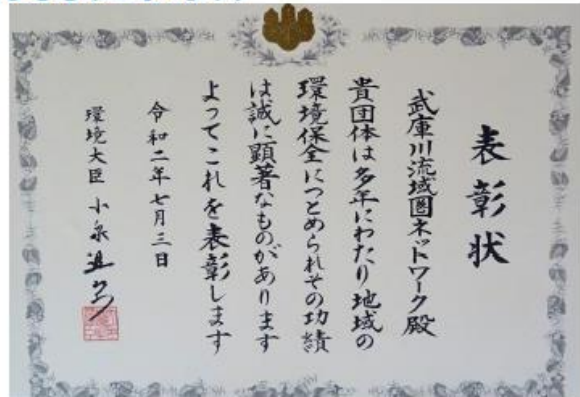 表彰状
武庫川流域圏ネットワーク殿
貴団体は多年にわたり地域の
環境保全につとめられその功績
は誠に顕著なものがあります
よってこれを表彰します
令和二年七月三日
環境大臣 小泉進次郎